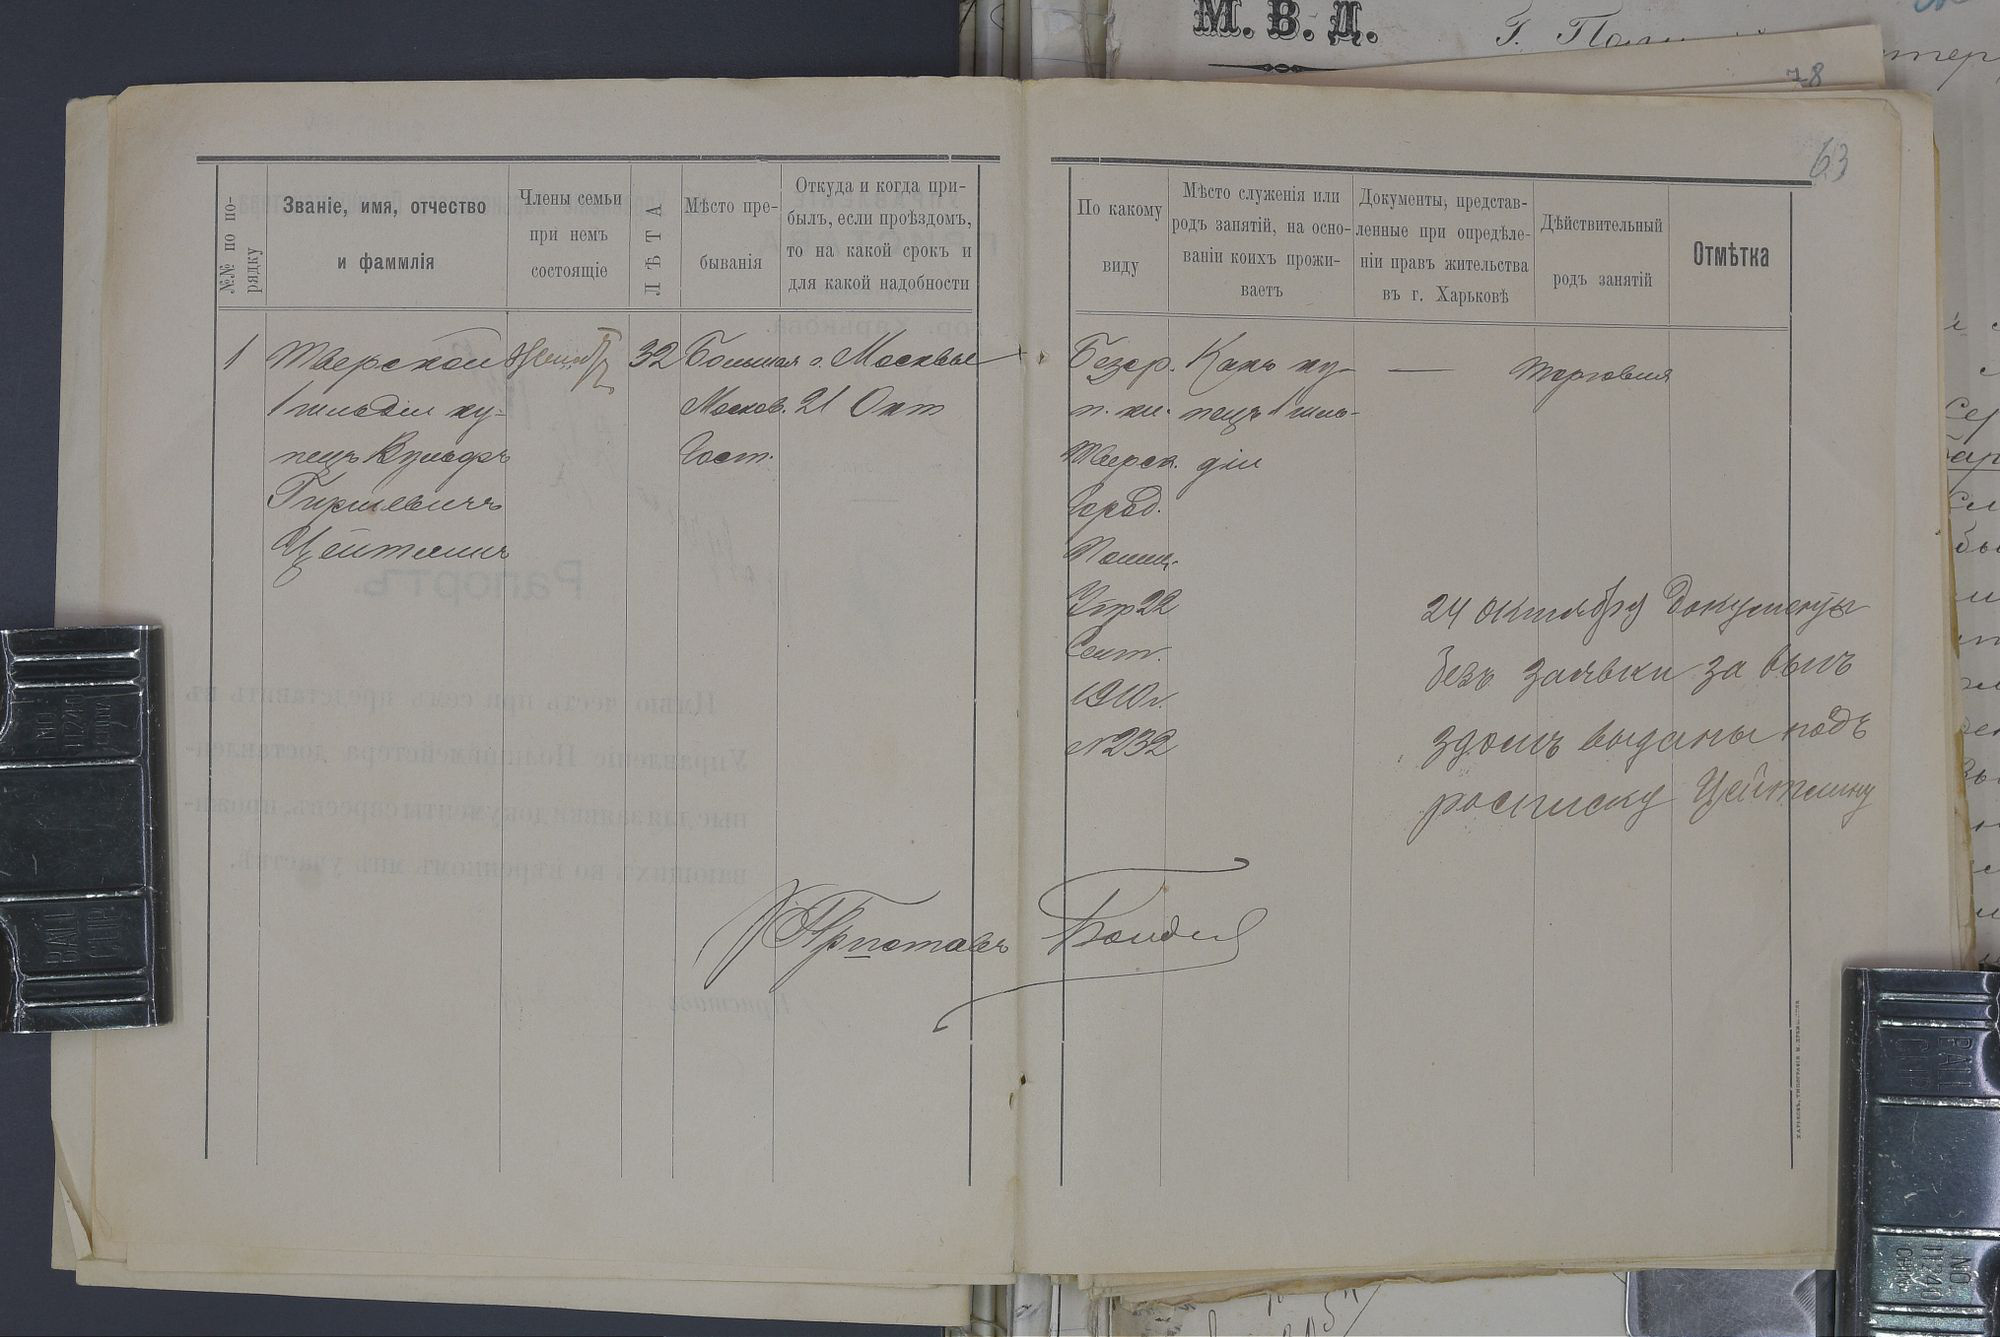 М. В. Д.
78
63
№№ по порядку
Званіе, имя, отчество
и фаммлія
Члены семьи
при немъ
состоящіе
ЛѢТА
Мѣсто пре-
быванія
Откуда и когда при-
былъ, если проѣздомъ,
то на какой срокъ и
для какой надобности
По какому
виду
Мѣсто служенія или
родъ занятій, на осно-
ваніи коихъ прожи-
ваетъ
Документы, представ-
ленные при опредѣле-
ніи правъ жительства
въ г. Харьковѣ
Дѣйствительный
родъ занятій
Отмѣтка
1
Тверской
1 гильдіи ку-
пецъ Вульфъ
Гиршевичъ
Цейтлинъ
32
Большая
Москов.
Гост.
г. Москвы
21 Окт
Безср.
п. кн.
Тверск.
Город.
Полиц.
Упр 22
Сент.
1910 г.
№232
Какъ ку-
пецъ 1 гиль-
діи
—
торговля
24 октября документы
безъ заявки за выѣ
здомъ выданы подъ
росписку Цейтлину
Приставъ